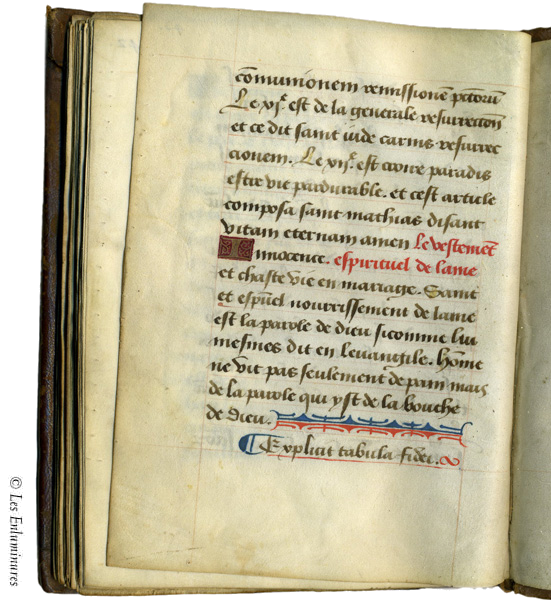 cōmunionem remissionē pctōrū
Le xjᵉ. est de la generale resurrection
et ce dit saint iude carnis resurrec
cionem. Le xijᵉ. est croire paradis
estre vie pardurable. et cest article
composa saint mathias disant
vitam eternam amen le vestemēt
Innocence. espirituel de lame
et chaste vie en mariage. Saint
et espūel nourrissement de lame
est la parole de dieu sicomme lui
mesmes dit en leuangile. hōme
ne vit pas seulement de pain mais
de la parole qui yst de la bouche
de dieu.
Explicit tabula fidei.
© Les Enluminures